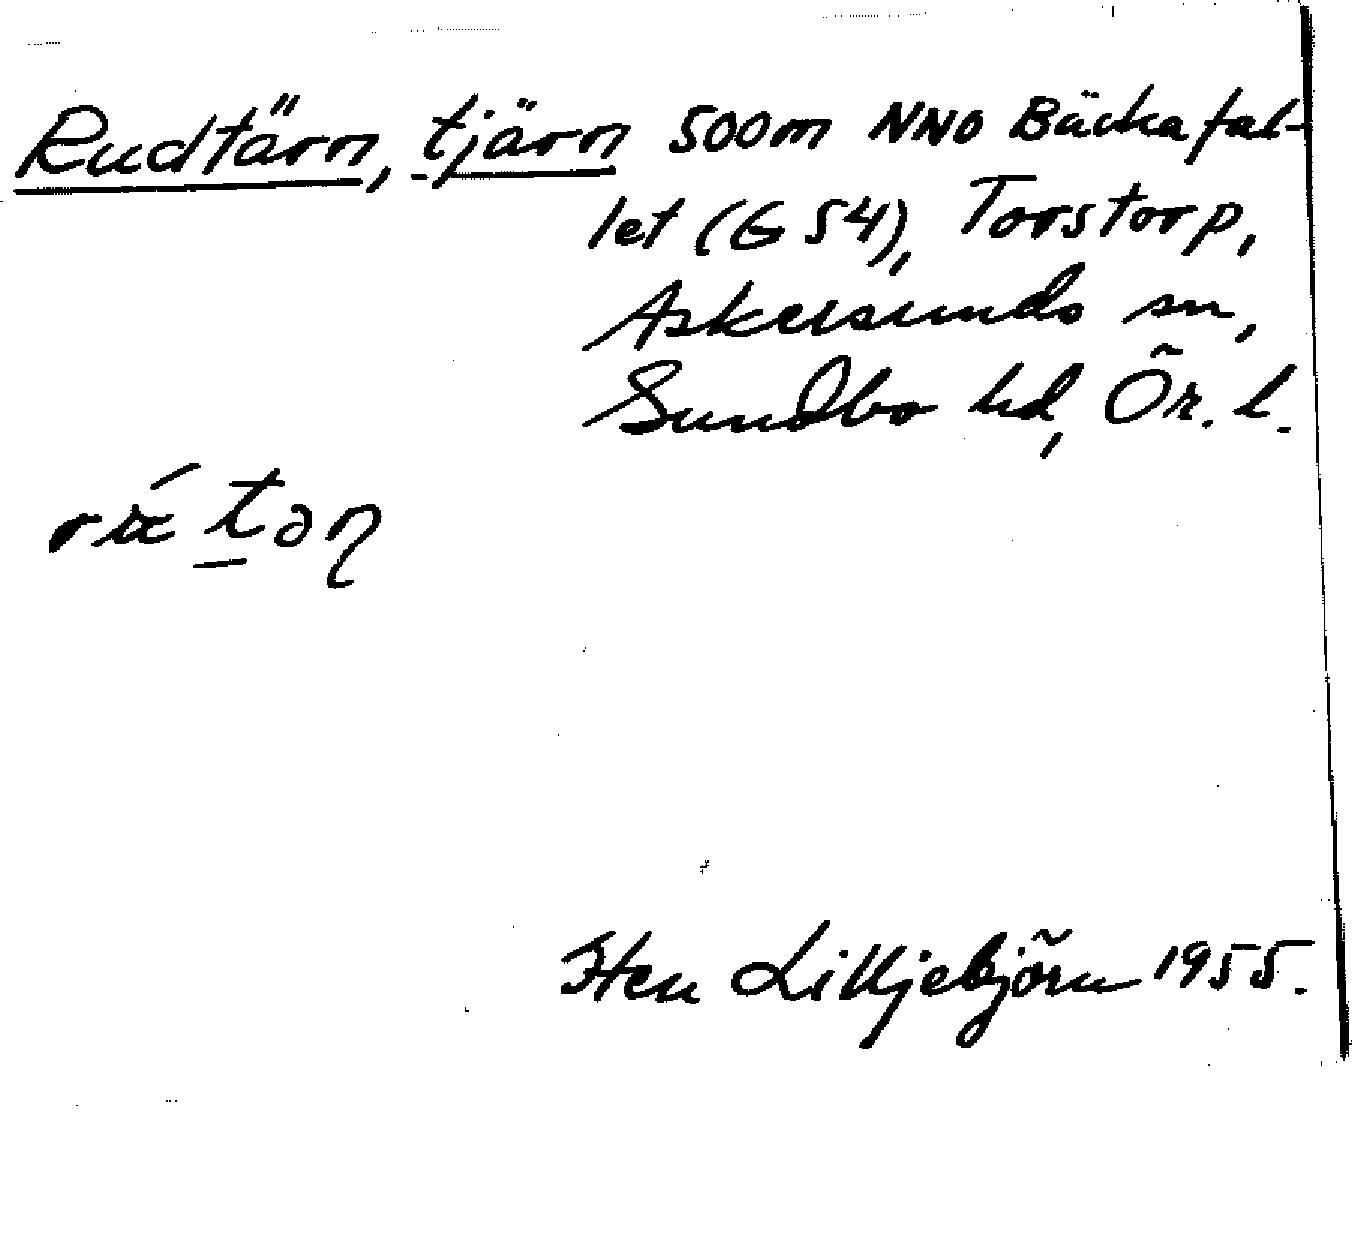 Rudtärn, tjärn 500m NNO Bäckafal-
let (G 54), Torstorp,
Askersunds sn,
Sundbo hd, Ör. l.
Sten Liljebjörn 1955.